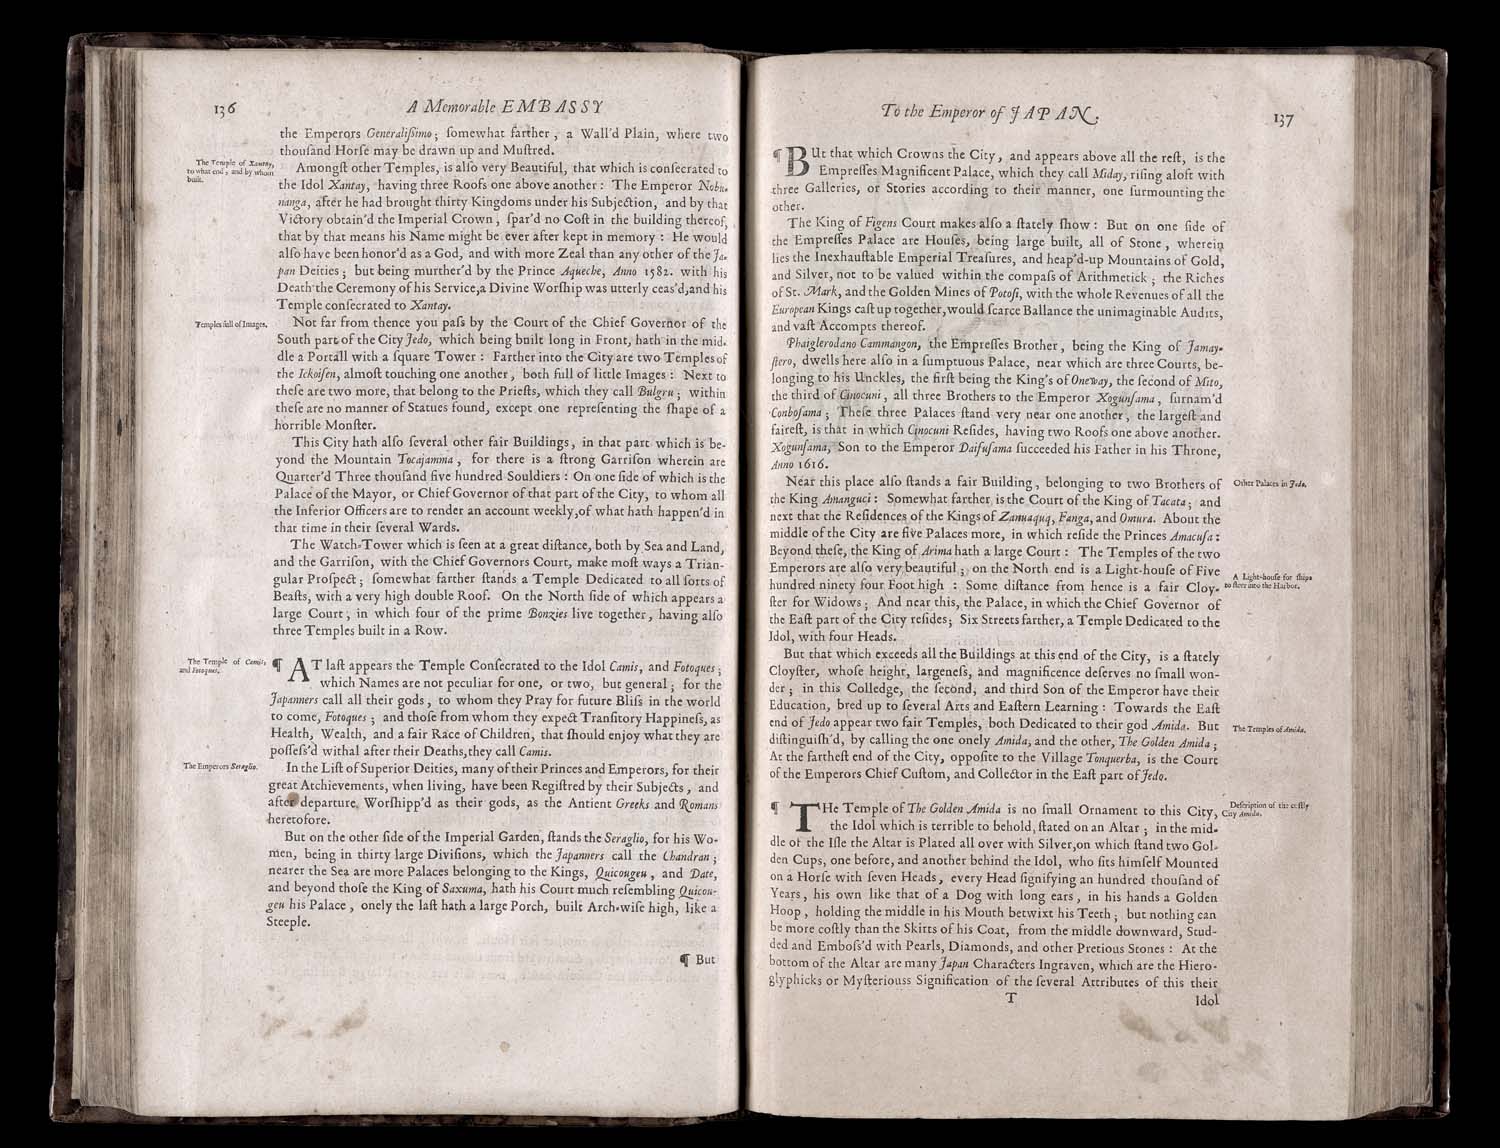 136
A Memorable EMBASSY
the Emperors Generaliſsimo; ſomewhat farther, a Wall'd Plain, where two
thouſand Horſe may be drawn up and Muſtred.
The Temple of Xantay,
to what end, and by whom
built.
Amongſt other Temples, is alſo very Beautiful, that which is conſecrated to
the Idol Xantay, having three Roofs one above another: The Emperor Nobu-
nanga, after he had brought thirty Kingdoms under his Subjection, and by that
Victory obtain'd the Imperial Crown, ſpar'd no Coſt in the building thereof,
that by that means his Name might be ever after kept in memory: He would
alſo have been honor'd as a God, and with more Zeal than any other of the Ja-
pan Deities; but being murther'd by the Prince Aqueche, Anno 1582. with his
Death the Ceremony of his Service, a Divine Worſhip was utterly ceas'd, and his
Temple conſecrated to Xantay.
Temples full of Images.
Not far from thence you paſs by the Court of the Chief Governor of the
South part of the City Jedo, which being built long in Front, hath in the mid-
dle a Portall with a ſquare Tower: Farther into the City are two Temples of
the Ickoiſen, almoſt touching one another, both full of little Images: Next to
theſe are two more, that belong to the Prieſts, which they call Bulgru; within
theſe are no manner of Statues found, except one repreſenting the ſhape of a
horrible Monſter.
This City hath alſo ſeveral other fair Buildings, in that part which is be-
yond the Mountain Tocajamma, for there is a ſtrong Garriſon wherein are
Quarter'd Three thouſand five hundred Souldiers: On one ſide of which is the
Palace of the Mayor, or Chief Governor of that part of the City, to whom all
the Inferior Officers are to render an account weekly, of what hath happen'd in
that time in their ſeveral Wards.
The Watch-Tower which is ſeen at a great diſtance, both by Sea and Land,
and the Garriſon, with the Chief Governors Court, make moſt ways a Trian-
gular Proſpect; ſomewhat farther ſtands a Temple Dedicated to all ſorts of
Beaſts, with a very high double Roof. On the North ſide of which appears a
large Court, in which four of the prime Bonzies live together, having alſo
three Temples built in a Row.
The Temple of Camis,
and Fotoques.
¶ AT laſt appears the Temple Conſecrated to the Idol Camis, and Fotoques;
which Names are not peculiar for one, or two, but general; for the
Japanners call all their gods, to whom they Pray for future Bliſs in the world
to come, Fotoques; and thoſe from whom they expect Tranſitory Happineſs, as
Health, Wealth, and a fair Race of Children, that ſhould enjoy what they are
poſſeſs'd withal after their Deaths, they call Camis.
The Emperors Seraglio.
In the Liſt of Superior Deities, many of their Princes and Emperors, for their
great Atchievements, when living, have been Regiſtred by their Subjects, and
after departure Worſhipp'd as their gods, as the Antient Greeks and Romans
heretofore.
But on the other ſide of the Imperial Garden, ſtands the Seraglio, for his Wo-
men, being in thirty large Diviſions, which the Japanners call the Chandran;
nearer the Sea are more Palaces belonging to the Kings, Quicougeu, and Date,
and beyond thoſe the King of Saxuma, hath his Court much reſembling Quicou-
geu his Palace, onely the laſt hath a large Porch, built Arch-wiſe high, like a
Steeple.
¶ But
To the Emperor of JAPAN.
137
¶ BUt that which Crowns the City, and appears above all the reſt, is the
Empreſſes Magnificent Palace, which they call Miday, riſing aloft with
three Galleries, or Stories according to their manner, one ſurmounting the
other.
The King of Figens Court makes alſo a ſtately ſhow: But on one ſide of
the Empreſſes Palace are Houſes, being large built, all of Stone, wherein
lies the Inexhauſtable Emperial Treaſures, and heap'd-up Mountains of Gold,
and Silver, not to be valued within the compaſs of Arithmetick; the Riches
of St. Mark, and the Golden Mines of Potoſi, with the whole Revenues of all the
European Kings caſt up together, would ſcarce Ballance the unimaginable Audits,
and vaſt Accompts thereof.
Phaiglerodano Cammangon, the Empreſſes Brother, being the King of Jamay-
ſtero, dwells here alſo in a ſumptuous Palace, near which are three Courts, be-
longing to his Unckles, the firſt being the King's of Oneway, the ſecond of Mito,
the third of Cinocuni, all three Brothers to the Emperor Xogunſama, ſurnam'd
Conboſama; Theſe three Palaces ſtand very near one another, the largeſt and
faireſt, is that in which Cinocuni Reſides, having two Roofs one above another.
Xogunſama, Son to the Emperor Daifuſama ſucceeded his Father in his Throne,
Anno 1616.
Other Palaces in Jedo.
Near this place alſo ſtands a fair Building, belonging to two Brothers of
the King Amanguci: Somewhat farther is the Court of the King of Tacata; and
next that the Reſidences of the Kings of Zanuaquq, Fanga, and Omura. About the
middle of the City are five Palaces more, in which reſide the Princes Amacuſa:
Beyond theſe, the King of Arima hath a large Court: The Temples of the two
Emperors are alſo very beautiful; on the North end is a Light-houſe of Five
A Light-houſe for ſhips
to ſteer into the Harbor.
hundred ninety four Foot high: Some diſtance from hence is a fair Cloy-
ſter for Widows; And near this, the Palace, in which the Chief Governor of
the Eaſt part of the City reſides; Six Streets farther, a Temple Dedicated to the
Idol, with four Heads.
But that which exceeds all the Buildings at this end of the City, is a ſtately
Cloyſter, whoſe height, largeneſs, and magnificence deſerves no ſmall won-
der; in this Colledge, the ſecond, and third Son of the Emperor have their
Education, bred up to ſeveral Arts and Eaſtern Learning: Towards the Eaſt
end of Jedo appear two fair Temples, both Dedicated to their god Amida. But
The Temples of Amida.
diſtinguiſh'd, by calling the one onely Amida, and the other, The Golden Amida;
At the fartheſt end of the City, oppoſite to the Village Tonquerba, is the Court
of the Emperors Chief Cuſtom, and Collector in the Eaſt part of Jedo.
Deſcription of the coſtly
City Amida.
¶ THe Temple of The Golden Amida is no ſmall Ornament to this City,
the Idol which is terrible to behold, ſtated on an Altar; in the mid-
dle of the Iſle the Altar is Plated all over with Silver, on which ſtand two Gol-
den Cups, one before, and another behind the Idol, who ſits himſelf Mounted
on a Horſe with ſeven Heads, every Head ſignifying an hundred thouſand of
Years, his own like that of a Dog with long ears, in his hands a Golden
Hoop, holding the middle in his Mouth betwixt his Teeth; but nothing can
be more coſtly than the Skirts of his Coat, from the middle downward, Stud-
ded and Emboſs'd with Pearls, Diamonds, and other Pretious Stones: At the
bottom of the Altar are many Japan Characters Ingraven, which are the Hiero-
glyphicks or Myſteriouss Signification of the ſeveral Attributes of this their
T
Idol